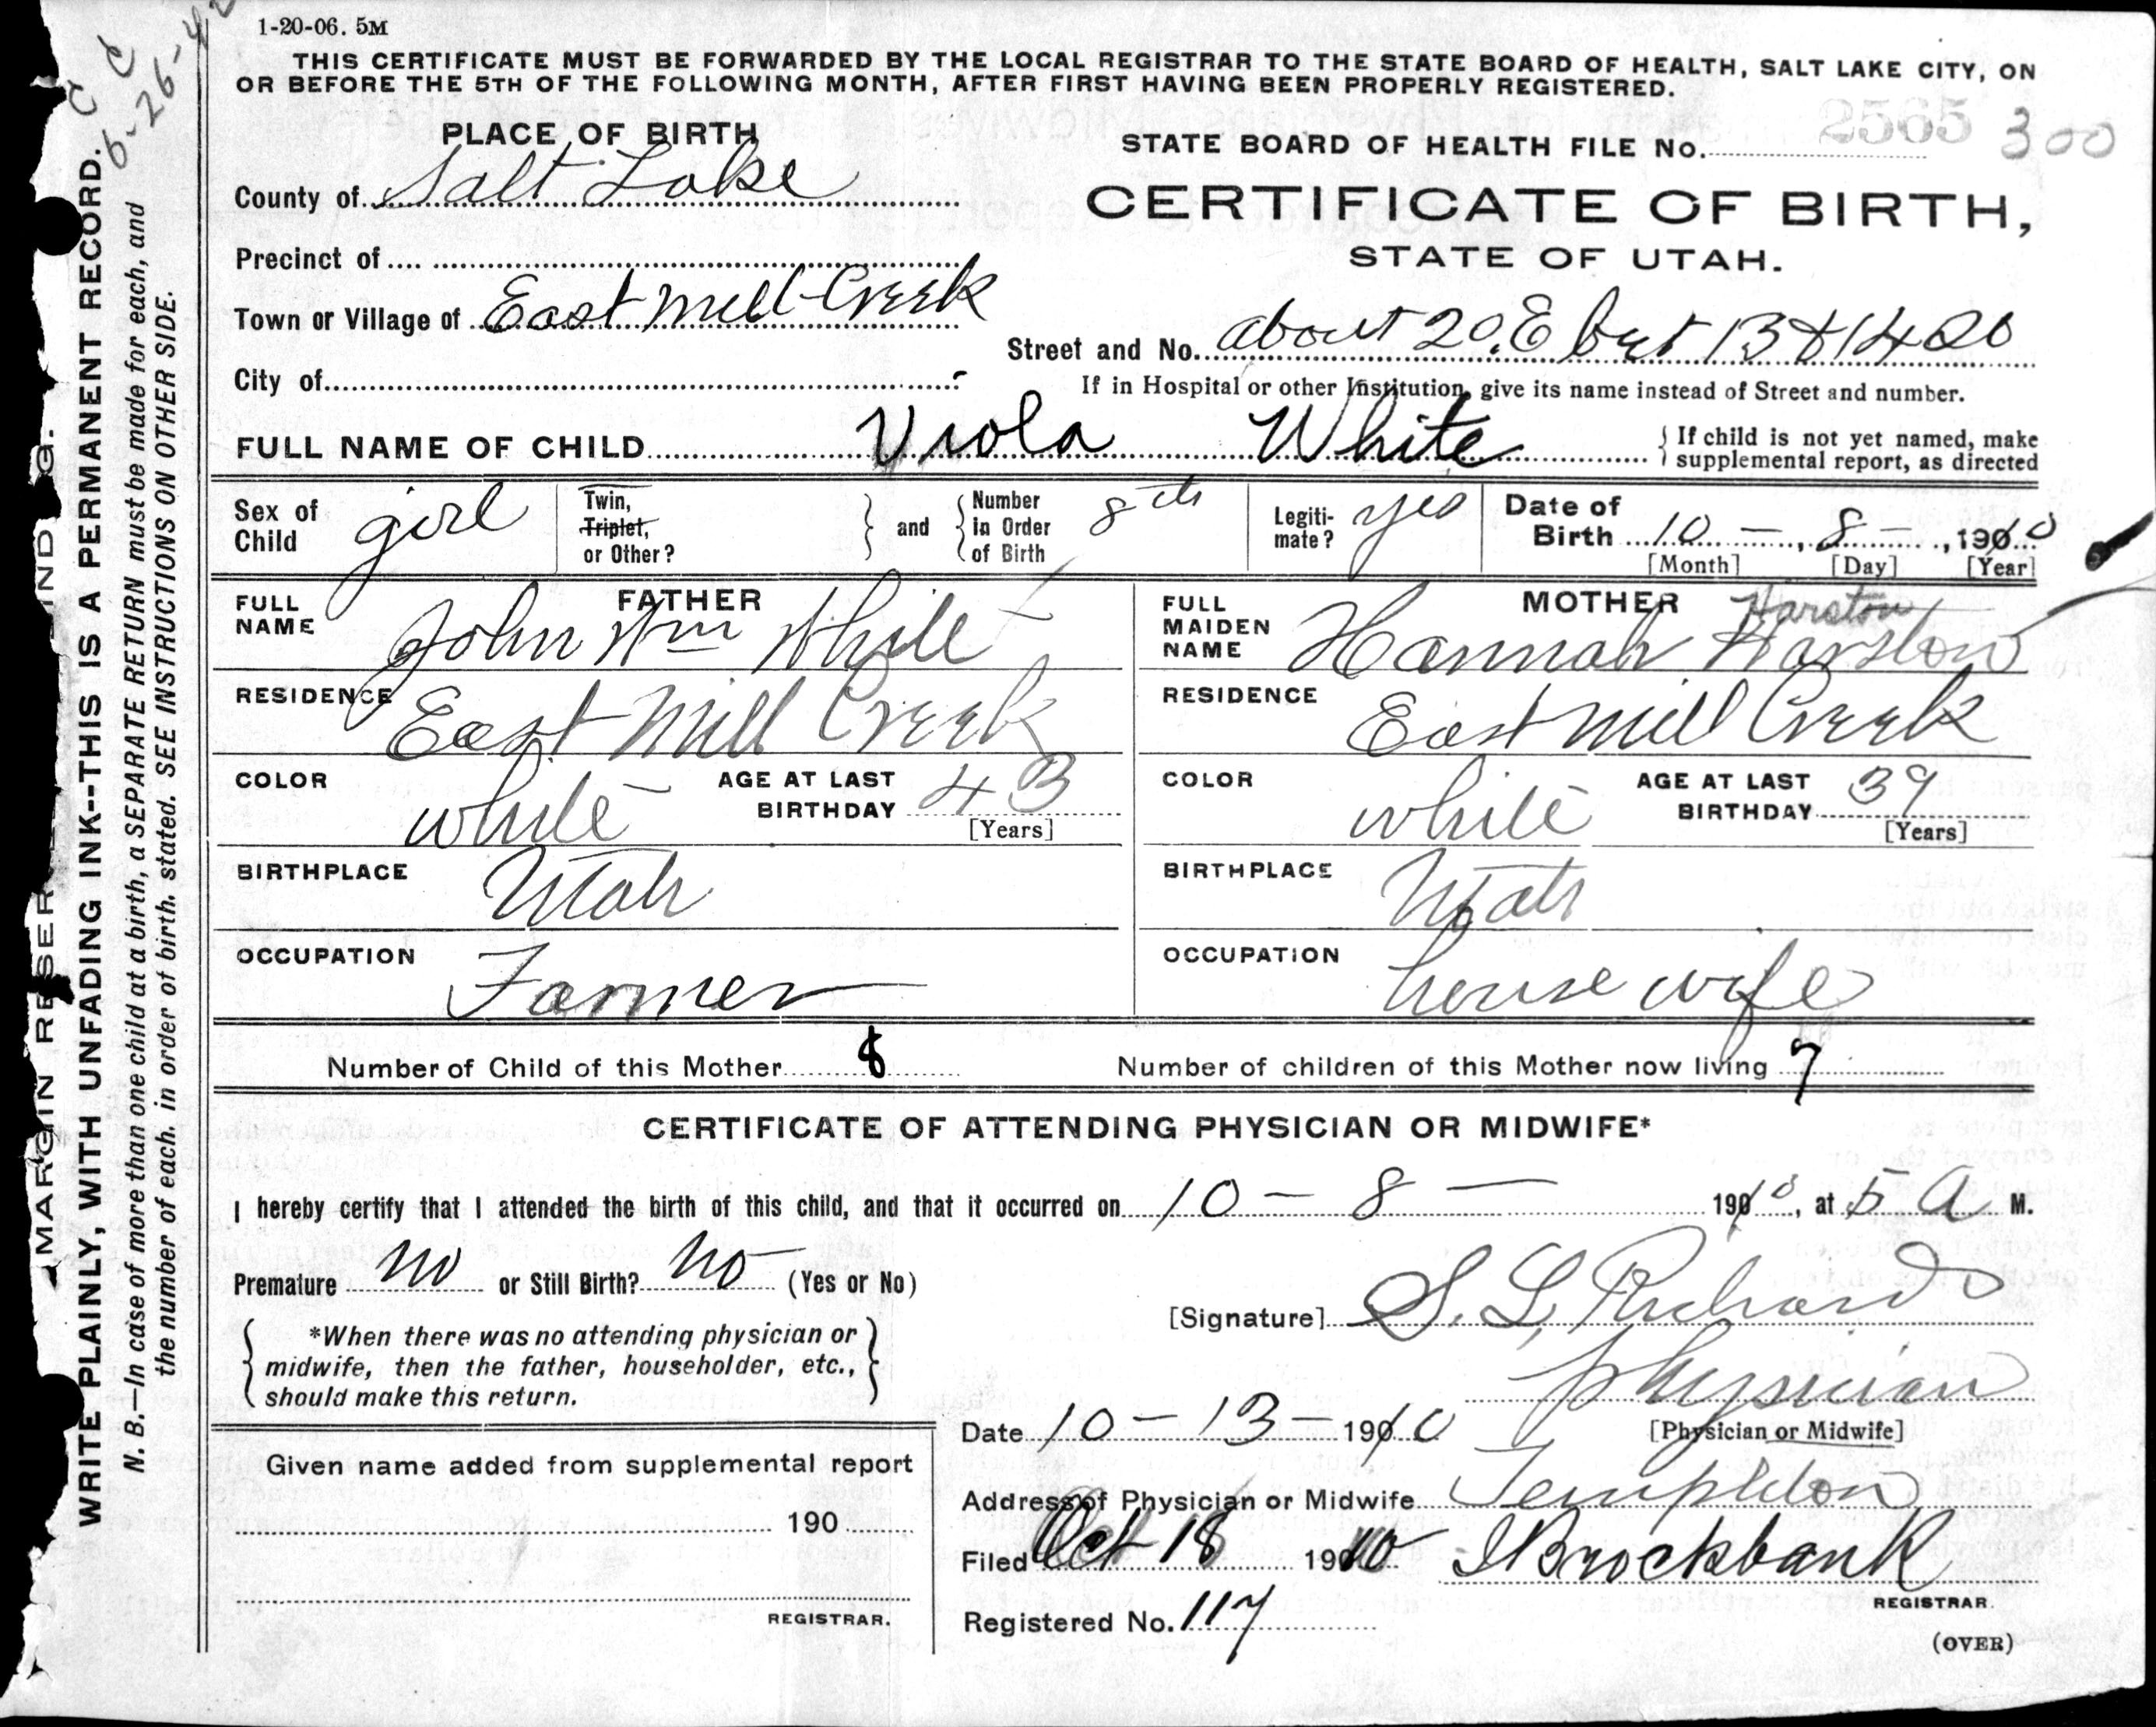 1-20-06. 5M
THIS CERTIFICATE MUST BE FORWARDED BY THE LOCAL REGISTRAR TO THE STATE BOARD OF HEALTH, SALT LAKE CITY, ON
OR BEFORE THE 5TH OF THE FOLLOWING MONTH, AFTER FIRST HAVING BEEN PROPERLY REGISTERED.
C C
6-26-42
MARGIN RESER IND G.
WRITE PLAINLY, WITH UNFADING INK--THIS IS A PERMANENT RECORD.
N. B.—In case of more than one child at a birth, a SEPARATE RETURN must be made for each, and
the number of each, in order of birth, stated. SEE INSTRUCTIONS ON OTHER SIDE.
PLACE OF BIRTH
County of Salt Lake
Precinct of
Town or Village of East Mill Creek
City of
STATE BOARD OF HEALTH FILE No. 2565 300
CERTIFICATE OF BIRTH,
STATE OF UTAH.
Street and No. about 20.E bet 13 & 14 So
If in Hospital or other Institution, give its name instead of Street and number.
FULL NAME OF CHILD Viola White
If child is not yet named, make
supplemental report, as directed
Sex of Child girl
Twin, Triplet, or Other?
and Number in Order of Birth 8th
Legitimate? yes
Date of Birth 10 - 8 - , 1910
[Month] [Day] [Year]
FATHER
FULL NAME John Wm White
RESIDENCE East Mill Creek
COLOR white AGE AT LAST BIRTHDAY 43
[Years]
BIRTHPLACE Utah
OCCUPATION Farmer
MOTHER Harston
FULL MAIDEN NAME Hannah Harston
RESIDENCE East Mill Creek
COLOR white AGE AT LAST BIRTHDAY 39
[Years]
BIRTHPLACE Utah
OCCUPATION house wife
Number of Child of this Mother 8 Number of children of this Mother now living 7
CERTIFICATE OF ATTENDING PHYSICIAN OR MIDWIFE*
I hereby certify that I attended the birth of this child, and that it occurred on 10 - 8 - 1910, at 5 A M.
Premature no or Still Birth? no (Yes or No)
*When there was no attending physician or
midwife, then the father, householder, etc.,
should make this return.
[Signature] S. L. Richards
Physician
[Physician or Midwife]
Date 10 - 13 - 1910
Address of Physician or Midwife Templeton
Filed Oct 18 1910 Brockbank
REGISTRAR.
Registered No. 117
(OVER)
Given name added from supplemental report
190
REGISTRAR.